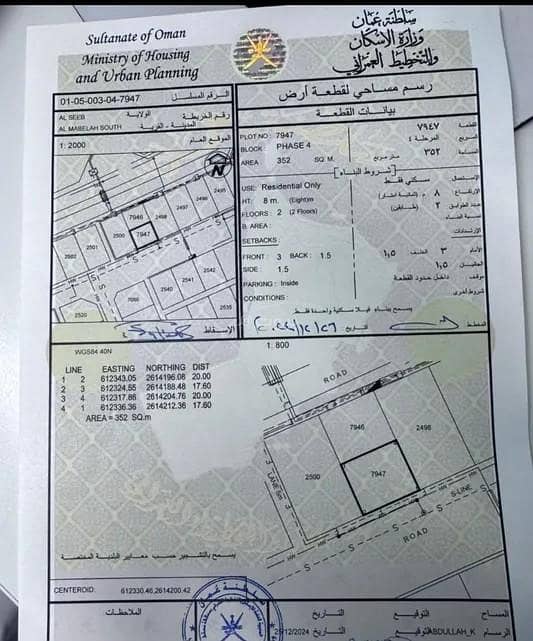 Sultanate of Oman
Ministry of Housing
and Urban Planning
سلطنة عمان
وزارة الإسكان
والتخطيط العمراني
رسم مساحي لقطعة أرض
بيانات القطعة
01-05-003-04-7947
AL SEEB الولاية رقم الخريطة
AL MABELAH SOUTH المدينة - القرية
1: 2000 الموقع العام
N
2495
2496
2497
2498
7946
7947
2500
2501
2502
2542
2541
2540
7086
2535
2520
S
الإسقاط
PLOT NO : 7947 ٧٩٤٧ القطعة
BLOCK : PHASE 4 المرحلة ٤ المربع
AREA : 352 SQ. M. متر مربع ٣٥٢ المساحة
[شروط البناء]
USE: Residential Only سكني فقط الإستعمال
HT: 8 m. (Eight)m ٨ م (ثمانية أمتار) الإرتفاع
FLOORS : 2 (2 Floors) ٢ (طابقين) عدد الطوابق
B. AREA : مساحة البناء
SETBACKS : الإرتدادات
FRONT : 3 BACK : 1.5 الأمام ٣ الخلف ١,٥
SIDE : 1.5 الجانبان ١,٥
PARKING : Inside داخل حدود القطعة موقف
CONDITIONS : شروط أخرى
يسمح ببناء فيلا سكنية واحدة فقط
المخطط التاريخ
WGS84 40N
LINE EASTING NORTHING DIST
1 2 612343.05 2614196.08 20.00
2 3 612324.55 2614188.48 17.60
3 4 612317.86 2614204.76 20.00
4 1 612336.36 2614212.36 17.60
AREA = 352 SQ.m
1: 800
ROAD
7946
2498
2500
7947
LANE 5m
S-LINE
S
HW
ROAD
يسمح بالتشجير حسب معايير البلدية المختصة
CENTEROID: 612330.46,2614200.42
الملاحظات
التاريخ التوقيع المساح
12/2024 التاريخ التوقيع ABDULLAH_K الرسام